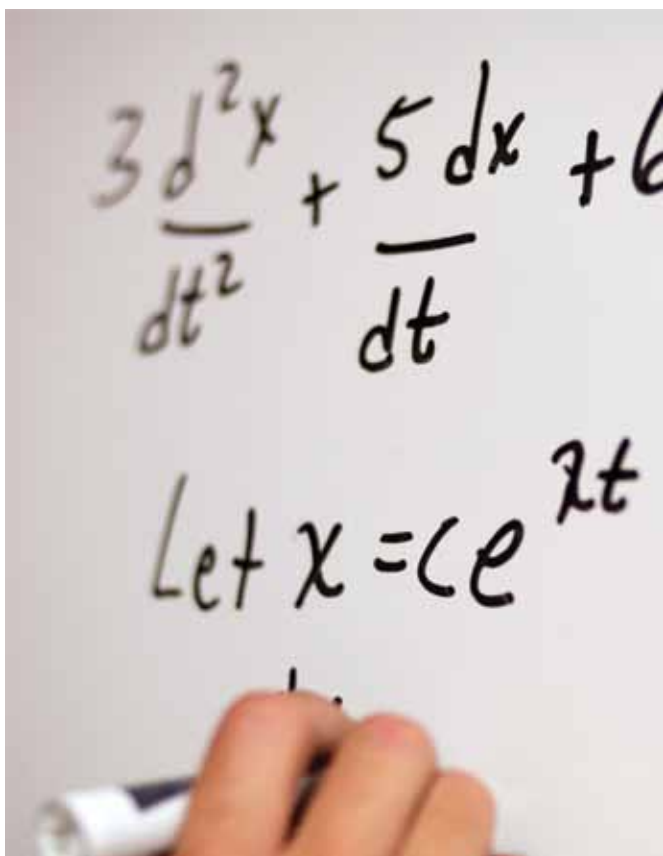 3d²x/dt² + 5dx/dt + 6
Let x = ce^λt